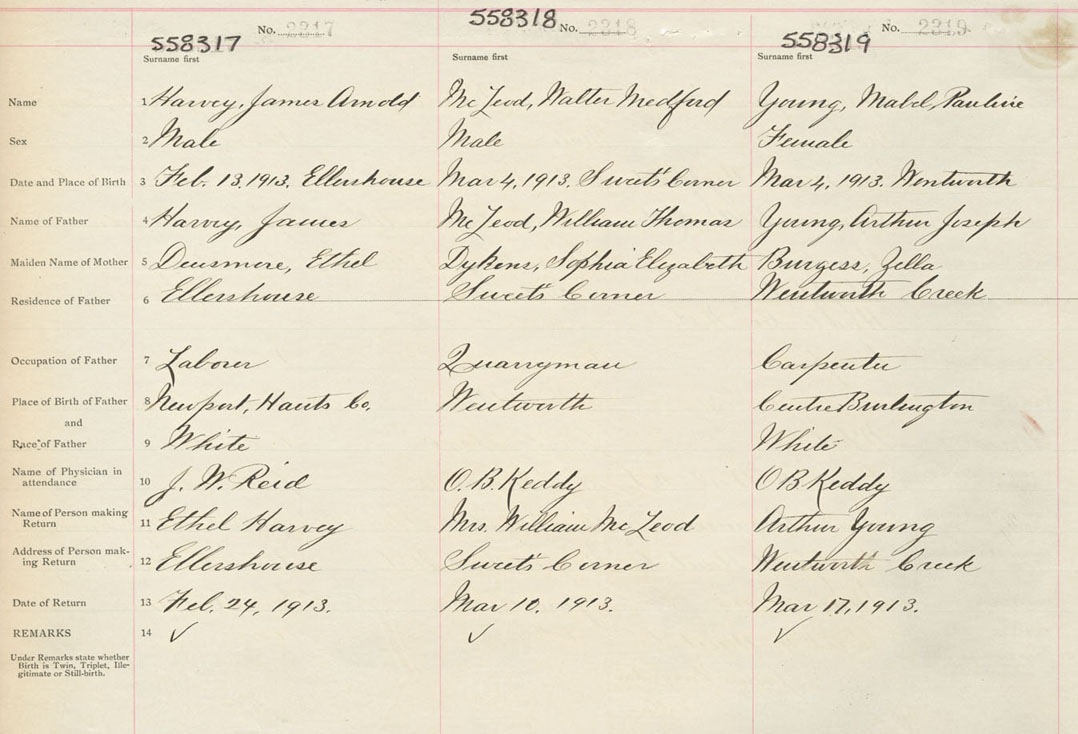 No. 2217 558318 No. 2218 No. 2219
558317 558319
Surname first Surname first Surname first
Name 1 Harvey, James Arnold McLeod, Walter Medford Young, Mabel, Pauline
Sex 2 Male Male Female
Date and Place of Birth 3 Feb. 13, 1913. Ellershouse Mar 4, 1913. Sweet's Corner Mar 4, 1913. Wentworth
Name of Father 4 Harvey, James McLeod, William Thomas Young, Arthur Joseph
Maiden Name of Mother 5 Densmore, Ethel Dykens, Sophia Elizabeth Burgess, Zella
Residence of Father 6 Ellershouse Sweet's Corner Wentworth Creek
Occupation of Father 7 Laborer Quarryman Carpenter
Place of Birth of Father 8 Newport, Hants Co. Wentworth Centre Burlington
and
Race of Father 9 White White
Name of Physician in
attendance 10 J. W. Reid O. B. Keddy O B Keddy
Name of Person making
Return 11 Ethel Harvey Mrs. William McLeod Arthur Young
Address of Person mak-
ing Return 12 Ellershouse Sweet's Corner Wentworth Creek
Date of Return 13 Feb. 24, 1913. Mar 10, 1913. Mar 17, 1913.
REMARKS 14 ✓ ✓ ✓
Under Remarks state whether
Birth is Twin, Triplet, Ille-
gitimate or Still-birth.